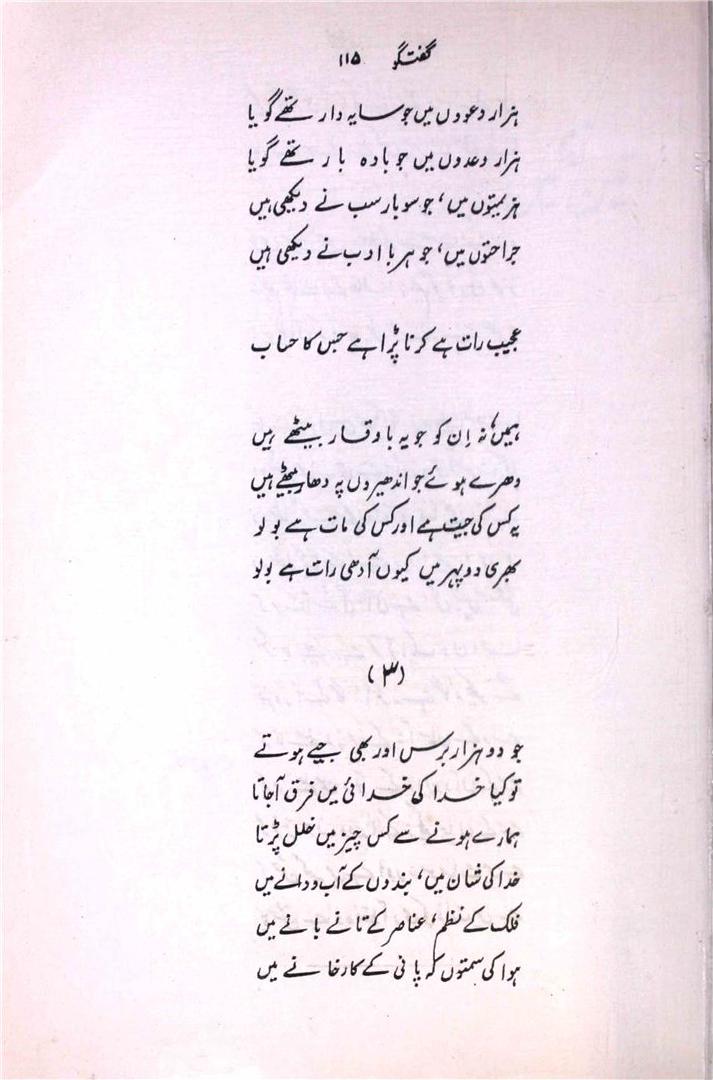 گفتگو ۱۱۵
ہزار دعووں میں جو سایہ دار تھے گویا
ہزار وعدوں میں جو بادہ بار تھے گویا
ہزیمتوں میں، جو سو بار سب نے دیکھی ہیں
جراحتوں میں، جو ہر با ادب نے دیکھی ہیں
عجیب رات ہے کرنا پڑا ہے جس کا حساب
ہمیں، نہ اِن کو جو یہ باوقار بیٹھے ہیں
دھرے ہوئے جو اندھیروں پہ دھار بیٹھے ہیں
یہ کس کی جیت ہے اور کس کی مات ہے بولو
بھری دوپہر میں کیوں آدھی رات ہے بولو
(۳)
جو دو ہزار برس اور بھی جیے ہوتے
تو کیا خدا کی خدائی میں فرق آجاتا
ہمارے ہونے سے کس چیز میں خلل پڑتا
خدا کی شان میں، بندوں کے آب و دانے میں
فلک کے نظم، عناصر کے تانے بانے میں
ہوا کی سمتوں کہ پانی کے کارخانے میں